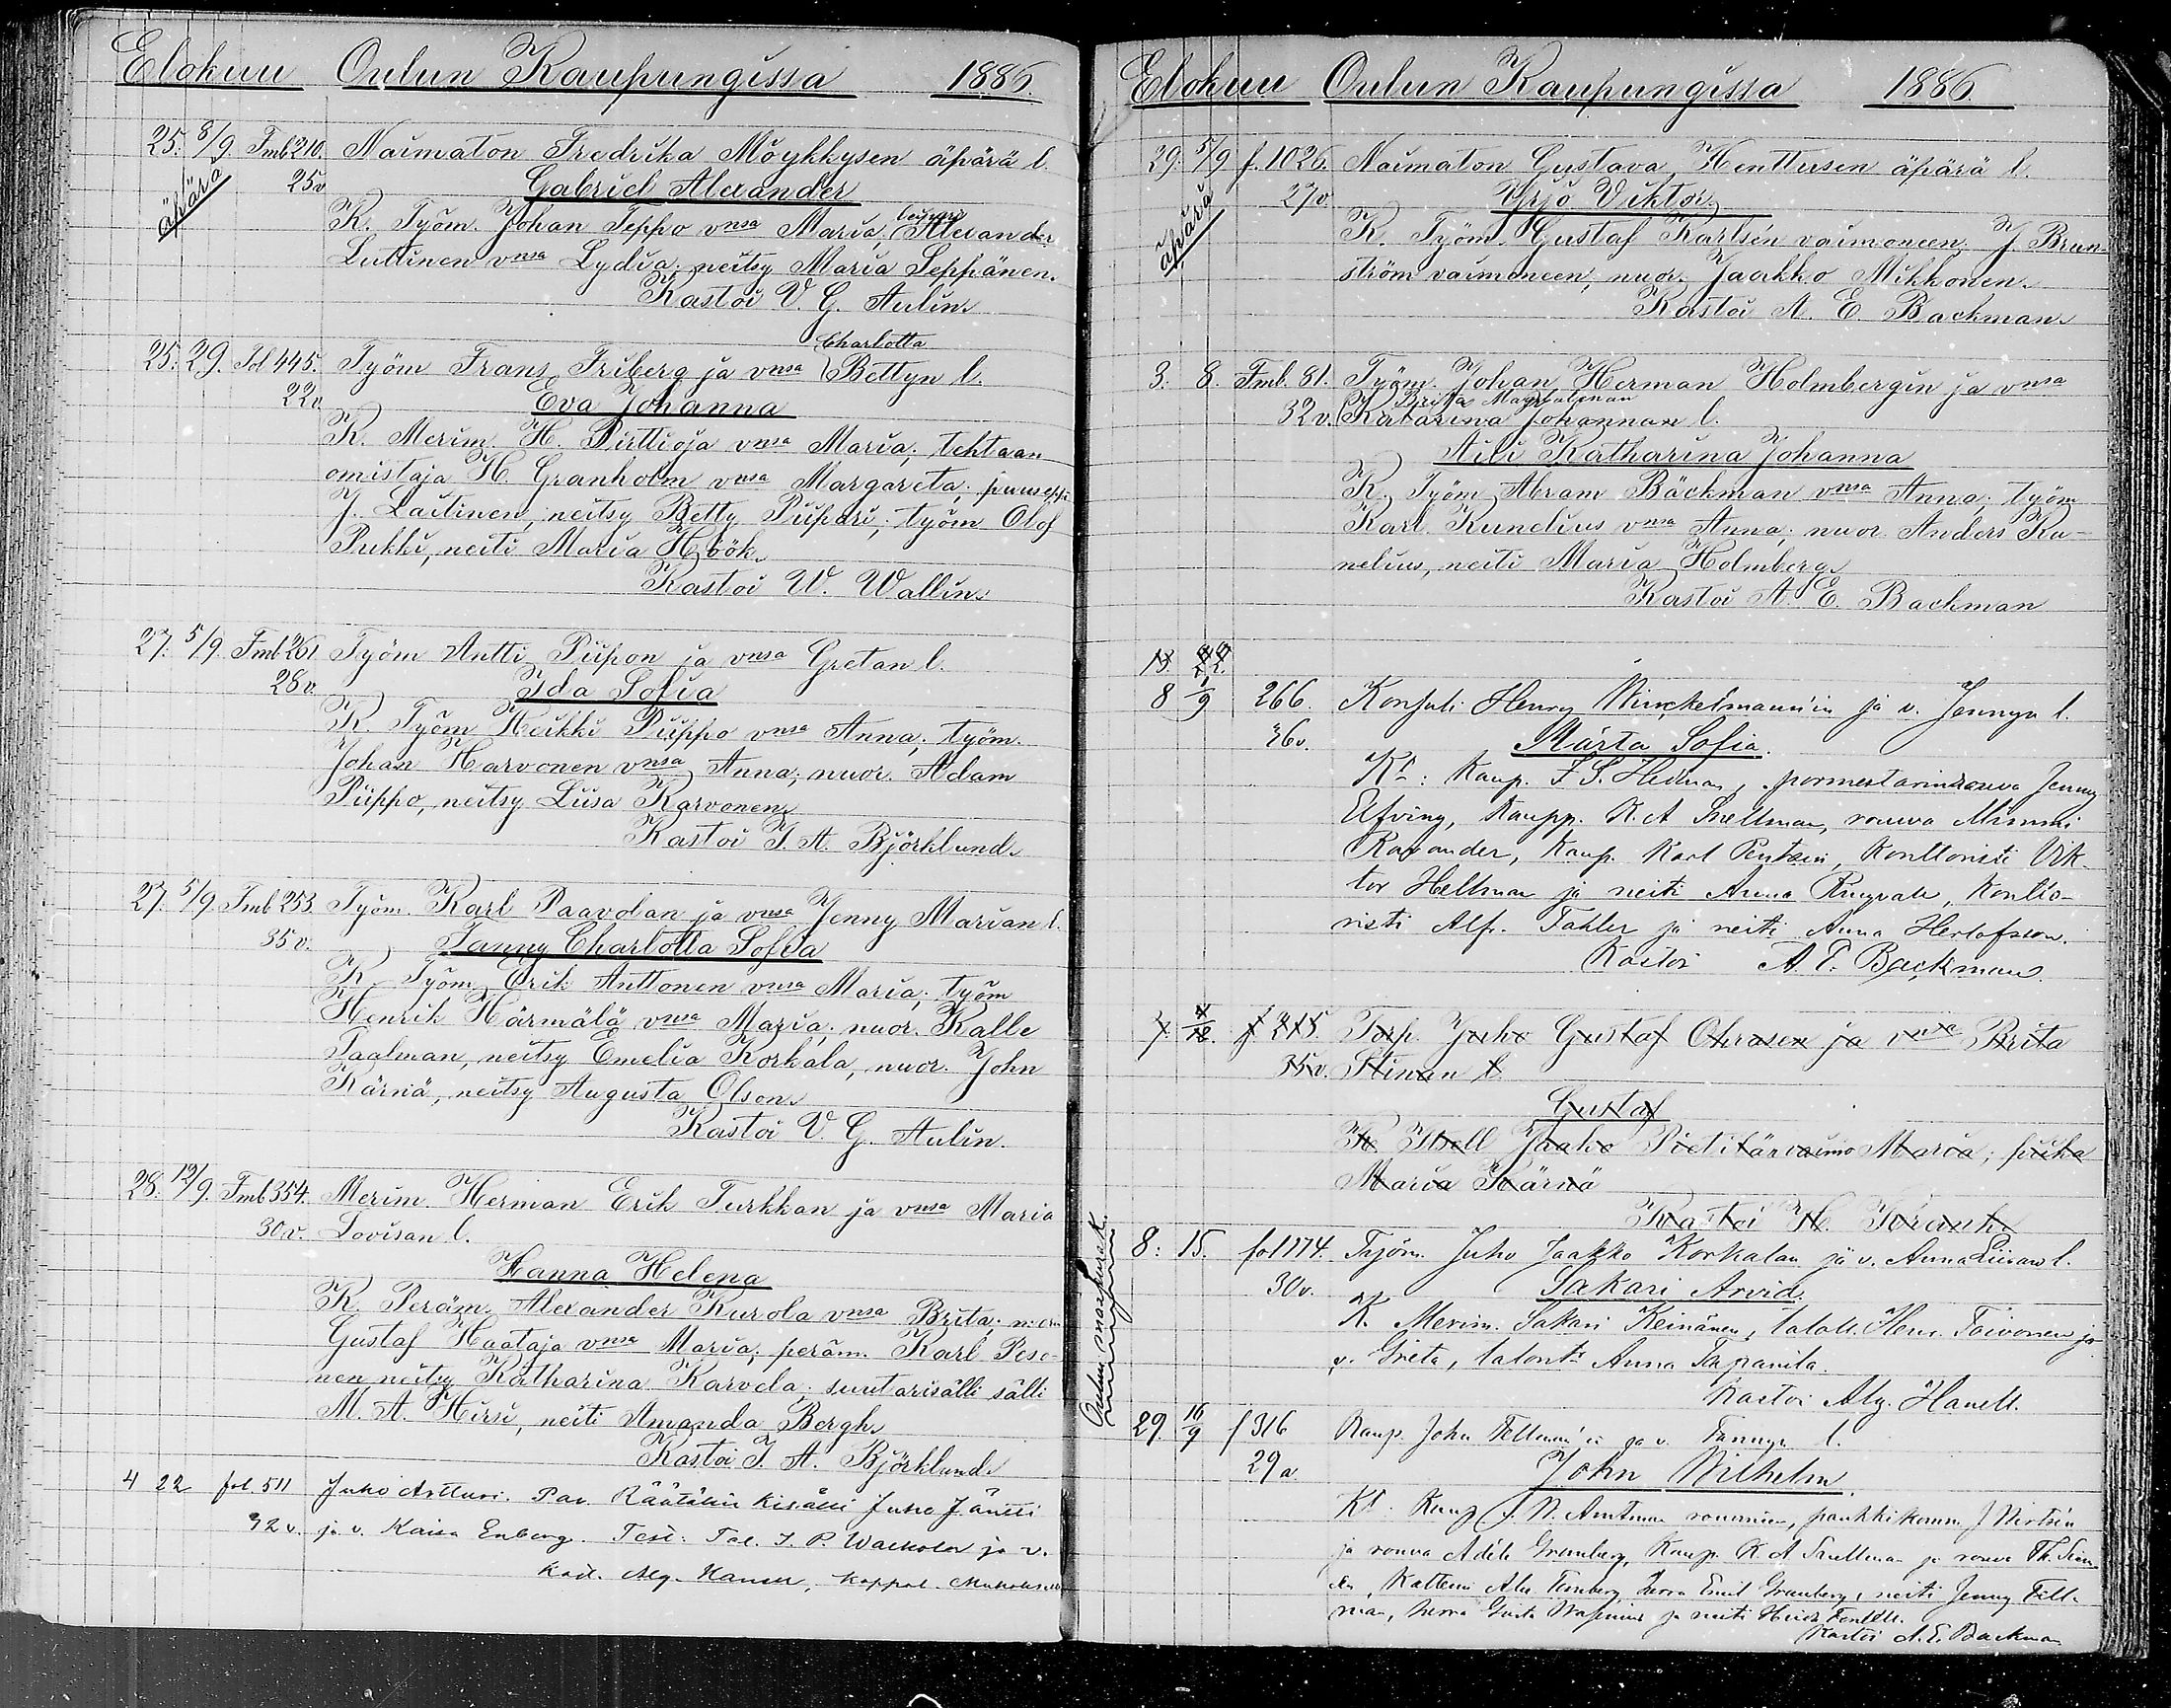 Elokuu Oulun Kaupungissa 1886.
25. 8/9. Fmb 210. Naimaton Fredrika Möykkysen äpärä l.
äpärä 25v Gabriel Alexander
K. Työm. Johan Teppo vnsa Maria, leipuri Alexander
Luttinen vnsa Lydia, neitsy Maria Seppänen.
Kastoi V. G. Aulin.
25. 29. Fol 445. Työm Frans Friberg ja vnsa Charlotta Bettyn l.
22v. Eva Johanna
K. Merim. H. Pirttioja vnsa Maria; tehtaan
omistaja H. Granholm vnsa Margareta; puuseppä
J. Laitinen, neitsy Betty Piipari; työm Olof
Pukki, neiti Maria Höök.
Kastoi W. Wallin.
27. 5/9. Fmb 261 Työm Antti Piipon ja vnsa Gretan l.
28v. Ida Sofia
K. Työm Heikki Piippo vnsa Anna; työm.
Johan Harvonen vnsa Anna; nuor. Adam
Piippo, neitsy Liisa Karvonen.
Kastoi J. A. Björklund.
27. 5/9. Fmb 253. Työm. Karl Paavolan ja vnsa Jenny Marian l.
35v. Fanny Charlotta Sofia
K. Työm. Erik Anttonen vnsa Maria; työm
Henrik Härmälä vnsa Maria; nuor. Kalle
Paalman, neitsy Emelia Korkala, nuor. John
Kärnä, neitsy Augusta Olson.
Kastoi V. G. Aulin.
28. 12/9. Fmb 354. Merim. Herman Erik Turkkan ja vnsa Maria
30v. Lovisan l.
Hanna Helena
K. Peräm. Alexander Kurola vnsa Brita; m:
Gustaf Haataja vnsa Maria; peräm. Karl Peso-
nen neitsy Katharina Karvela; suutarisälli sälli
M. A. Hirsi, neiti Amanda Bergh.
Kastoi J. A. Björklund.
4 22 fol. 511 Juho Artturi. Räätälin kisälli Juho Jäntti
32v. ja v. Kaisa Enberg. Test: Tal. J. P. ja v.
Kast. Alg. Hanell, kappal.
Elokuu Oulun Kaupungissa 1886.
29. 5/9 f. 1026. Naimaton Gustava Henttusen äpärä l.
äpärä 27v. Yrjö Viktor.
K. Työm. Gustaf Karlsin vaimoneen, J Brun-
ström vaimoneen, nuor. Jaakko Mikkonen.
Kastoi A. E. Backman.
3. 8. Fmb. 81. Työm. Johan Herman Holmbergin ja vnsa
Brita Magdalenan
32v. Katarina Johannan l.
Aili Katharina Johanna
K. Työm Abram Bäckman vnsa Anna; työm
Karl Kunelius vnsa Anna; nuor Anders Ku-
nelius, neiti Maria Holmberg.
Kastoi A. E. Backman
13.
8 1/9 266. Konsuli Henry Winckelmann'in ja v. Jennyn l.
26v. Märta Sofia.
Kt: Kaup. F. S. Hedman, pormestarinrouva Jenny
Elfving, Kaupp. K. A Snellman, rouva Mimmi
Ravander, Kaup. Karl Pentzin, Konttoristi Vik-
tor Hellman ja neiti Anna Ringvall, Kontto-
risti Alf. Tahler ja neiti Anna Herlofsson.
Kastoi A. E. Backman.
7. f 215. Torp. Juho Gustaf Ohrasen ja vnsa Brita
35v. Stinan l.
Gustaf
K. Itsell Jaako Pietikär vaimo Maria; piika
Maria Kärnä
Kastoi H. Krank.
Oulun maaseurak.
8: 15. fol 1174. Työm. Juho Jaakko Korkalan ja v. Anna Liisan l.
30v. Sakari Arvid.
K. Merim. Sakari Keinänen, taloll. Henr. Toivonen ja
v. Greta, talont. Anna Tapanila.
Kastoi Alg. Hanell.
29. 16/9 f 316 Kaup. John Fellman'in ja v. Fannyn l.
29a. John Wilhelm.
Kt. Kaup J. W. Antman rouvineen, pankkikomm. J Wirtsén
ja rouva Adéle Granberg, Kaup. K A Snellman ja rouva Th.
Alex. Fernberg, herra Emil Granberg, neiti Jenny Fell-
man, herra Gösta ja neiti
Kastoi A. E. Backman